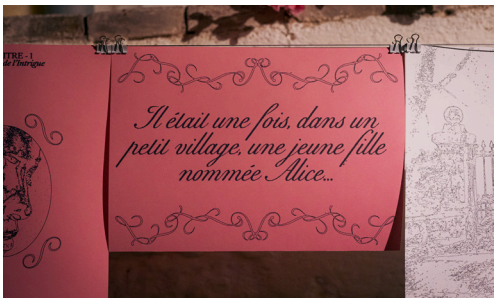 ITRE - 1
de l'Intrigue
Il était une fois, dans un
petit village, une jeune fille
nommée Alice...